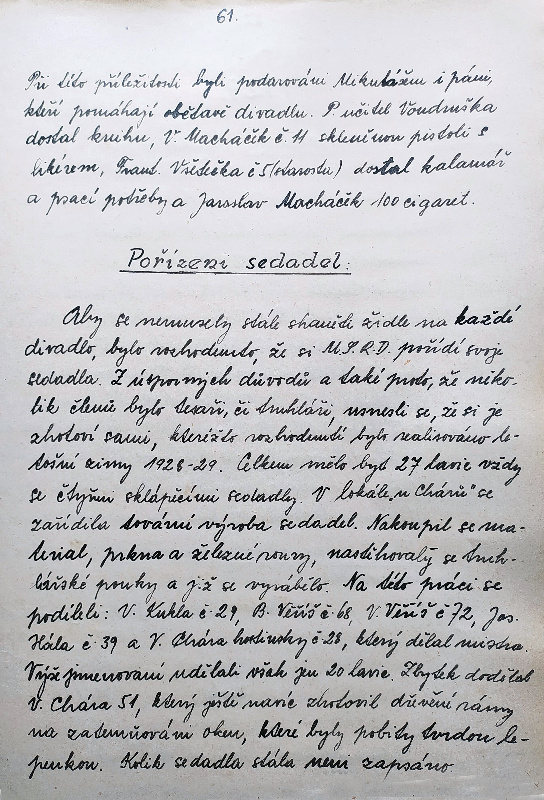 61.
Při této příležitosti byli podarováni Mikulášem i páni,
kteří pomáhají obětavě divadlu. P. učitel Voudruška
dostal knihu, V. Macháček č. 11 skleněnou pistoli s
likérem, Frant. Všetečka č 5 (starosta) dostal kalamář
a prací potřeby a Jaroslav Macháček 100 cigaret.
Pořízeni sedadel:
Aby se nemusely stále shaněti židle na každé
divadlo, bylo rozhodnuto, že si M.S.R.D. pořídí svoje
sedadla. Z úsporných důvodů a také proto, že něko-
lik členů bylo tesaři, či truhláři, usnesli se, že si je
zhotoví sami, kteréžto rozhodnutí bylo realisováno le-
tošní zimy 1928-29. Celkem mělo být 27 lavic vždy
se čtyřmi sklápěcími sedadly. V lokále „u Chárů" se
zařídila tovární výroba sedadel. Nakoupil se ma-
terial, prkna a železné roury, nastěhovaly se truh-
lářské ponky a již se vyrábělo. Na této práci se
podíleli: V. Kukla č 29, B. Veříš č 68, V. Veříš č 72, Jos.
Hála č 39 a V. Chára hostinský č 28, který dělal mistra.
Výše jmenovaní udělali však jen 20 lavic. Zbytek dodělal
V. Chára 51, který ještě navíc zhotovil dřevěné rámy
na zatemňování oken, které byly pobity tvrdou le-
penkou. Kolik sedadla stála není zapsáno.